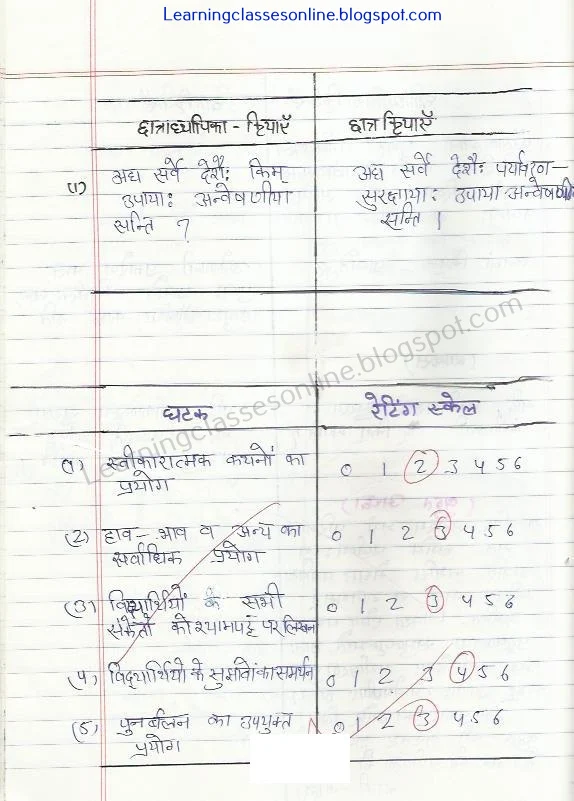 Learningclassesonline.blogspot.com
छात्राध्यापिका - क्रियाएँ
छात्र क्रियाएँ
(1) अद्य सर्वे देशैः किम्
उपायाः अन्वेषणीया
सन्ति ?
अद्य सर्वे देशैः पर्यावरण-
सुरक्षायाः उपाया अन्वेषणी
सन्ति ।
Learningclassesonline.blogspot.com
घटक
रेटिंग स्केल
(1) स्वीकारात्मक कथनों का
प्रयोग
0 1 2 3 4 5 6
(2) हाव-भाव व अन्य का
सर्वाधिक प्रयोग
0 1 2 3 4 5 6
(3) विद्यार्थियों के सभी
संकेतों को श्यामपट्ट पर लिखन
0 1 2 3 4 5 6
(4) विद्यार्थियों के सुझावों का समर्थन
0 1 2 3 4 5 6
(5) पुनर्बलन का उपयुक्त
प्रयोग
0 1 2 3 4 5 6